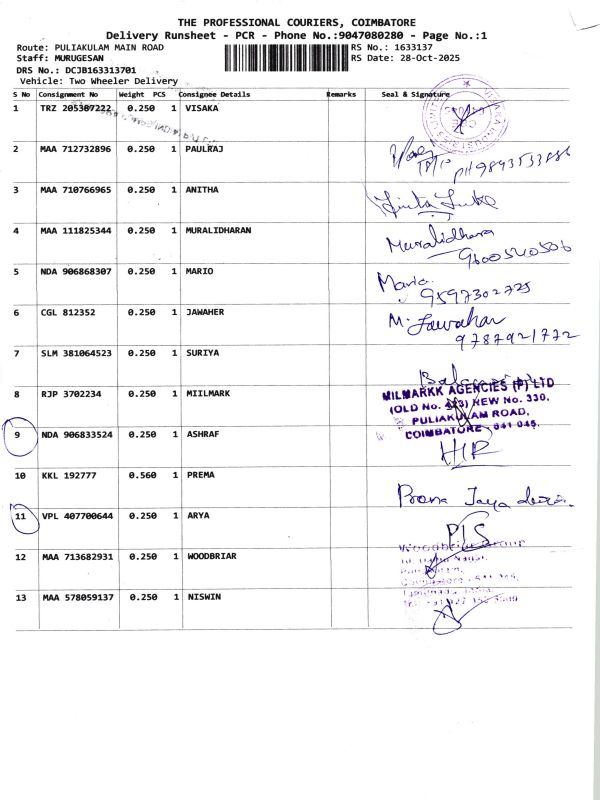 THE PROFESSIONAL COURIERS, COIMBATORE
Delivery Runsheet - PCR - Phone No.:9047080280 - Page No.:1
Route: PULIAKULAM MAIN ROAD RS No.: 1633137
Staff: MURUGESAN RS Date: 28-Oct-2025
DRS No.: DCJB163313701
Vehicle: Two Wheeler Delivery
S No Consignment No Weight PCS Consignee Details Remarks Seal & Signature
1 TRZ 205387222 0.250 1 VISAKA
2 MAA 712732896 0.250 1 PAULRAJ
3 MAA 710766965 0.250 1 ANITHA
4 MAA 111825344 0.250 1 MURALIDHARAN Muralidhara
9600540506
5 NDA 906868307 0.250 1 MARIO Mario
9597302725
6 CGL 812352 0.250 1 JAWAHER M. Jawahar
9787921772
7 SLM 381064523 0.250 1 SURIYA
8 RJP 3702234 0.250 1 MIILMARK MILMARKK AGENCIES (P) LTD
(OLD No. 423) NEW No. 330,
PULIAKULAM ROAD,
COIMBATORE - 641 045.
9 NDA 906833524 0.250 1 ASHRAF
10 KKL 192777 0.560 1 PREMA
11 VPL 407700644 0.250 1 ARYA
Woodbriar Group
12 MAA 713682931 0.250 1 WOODBRIAR
13 MAA 578059137 0.250 1 NISWIN